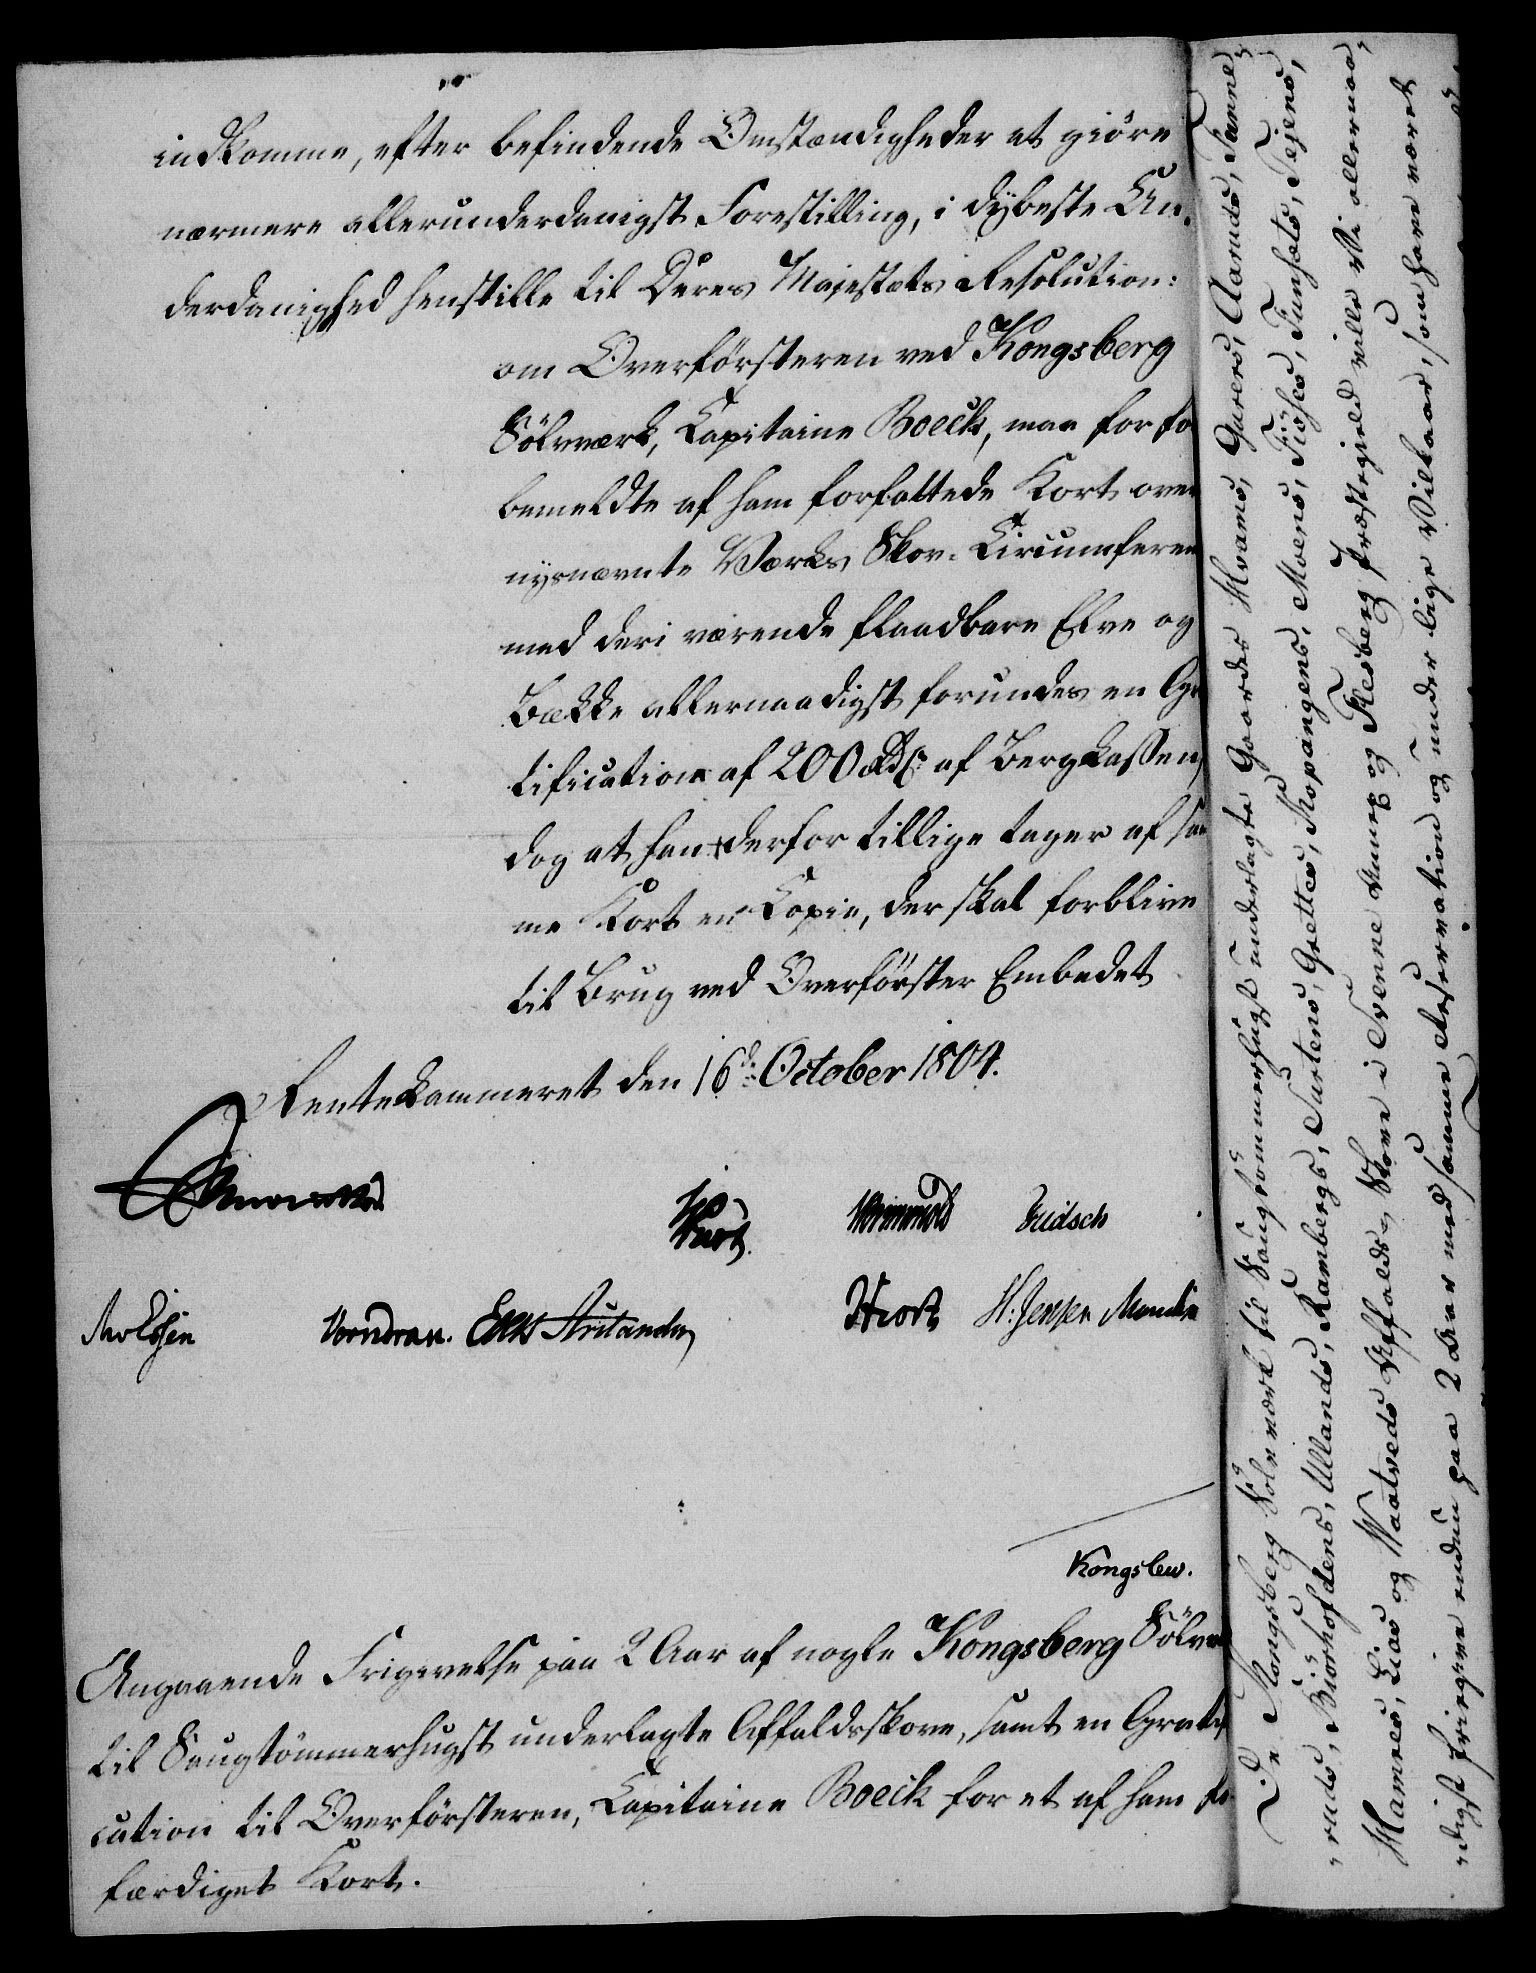 indkomme, efter befindende Omstændigheder at giöre
nærmere allerunderdanigst Forestilling, i dybeste Un-
derdanighed henstille til Deres Majestæts Resolution:
om Overförsteren ved Kongsberg
Sölvværk, Capitaine Boeck, maa for for
bemeldte af ham forfattede Kort over
nysnævnte Værks Skov-Circumferen
med deri værende flaadbare Elve og
Bække allernaadigst forundes en Gra
tification af 200 Rdr af Bergkassen,
dog at han derfor tillige tager af sam
me Kort en Copie, der skal forblive
til Brug ved Overförster Embedet
Rentekammeret den 16de October 1804.
Wormskiold
Hiort
H. Jensen
Kongslew.
Angaaende Frigivelse paa 2 Aar af nogle Kongsberg Sölvv
til Saugtömmerhugst underlagte Affaldsskove, samt en Gratifi
cation til Overförsteren, Capitaine Boeck for et af ham for
færdiget Kort.
De Kongsberg Sölvværk til Saugtömmerhugst underlagte Gaardes Hvams, Gurens, Aaruds, Sanne
ruds, Biörhofdens, Ullands, Rambergs, Surtens, Grettes, Kopangens, Moens, Fiöses, Tunhols, Tejens,
Hamres, Lias og Waatveds Affalds-Skove i Svenne Annex og Flesberg Præstegield ville Vi allernaa-
digst frigive endnu paa 2 Aar med samme Reservation og under lige Vilkaar, som have været